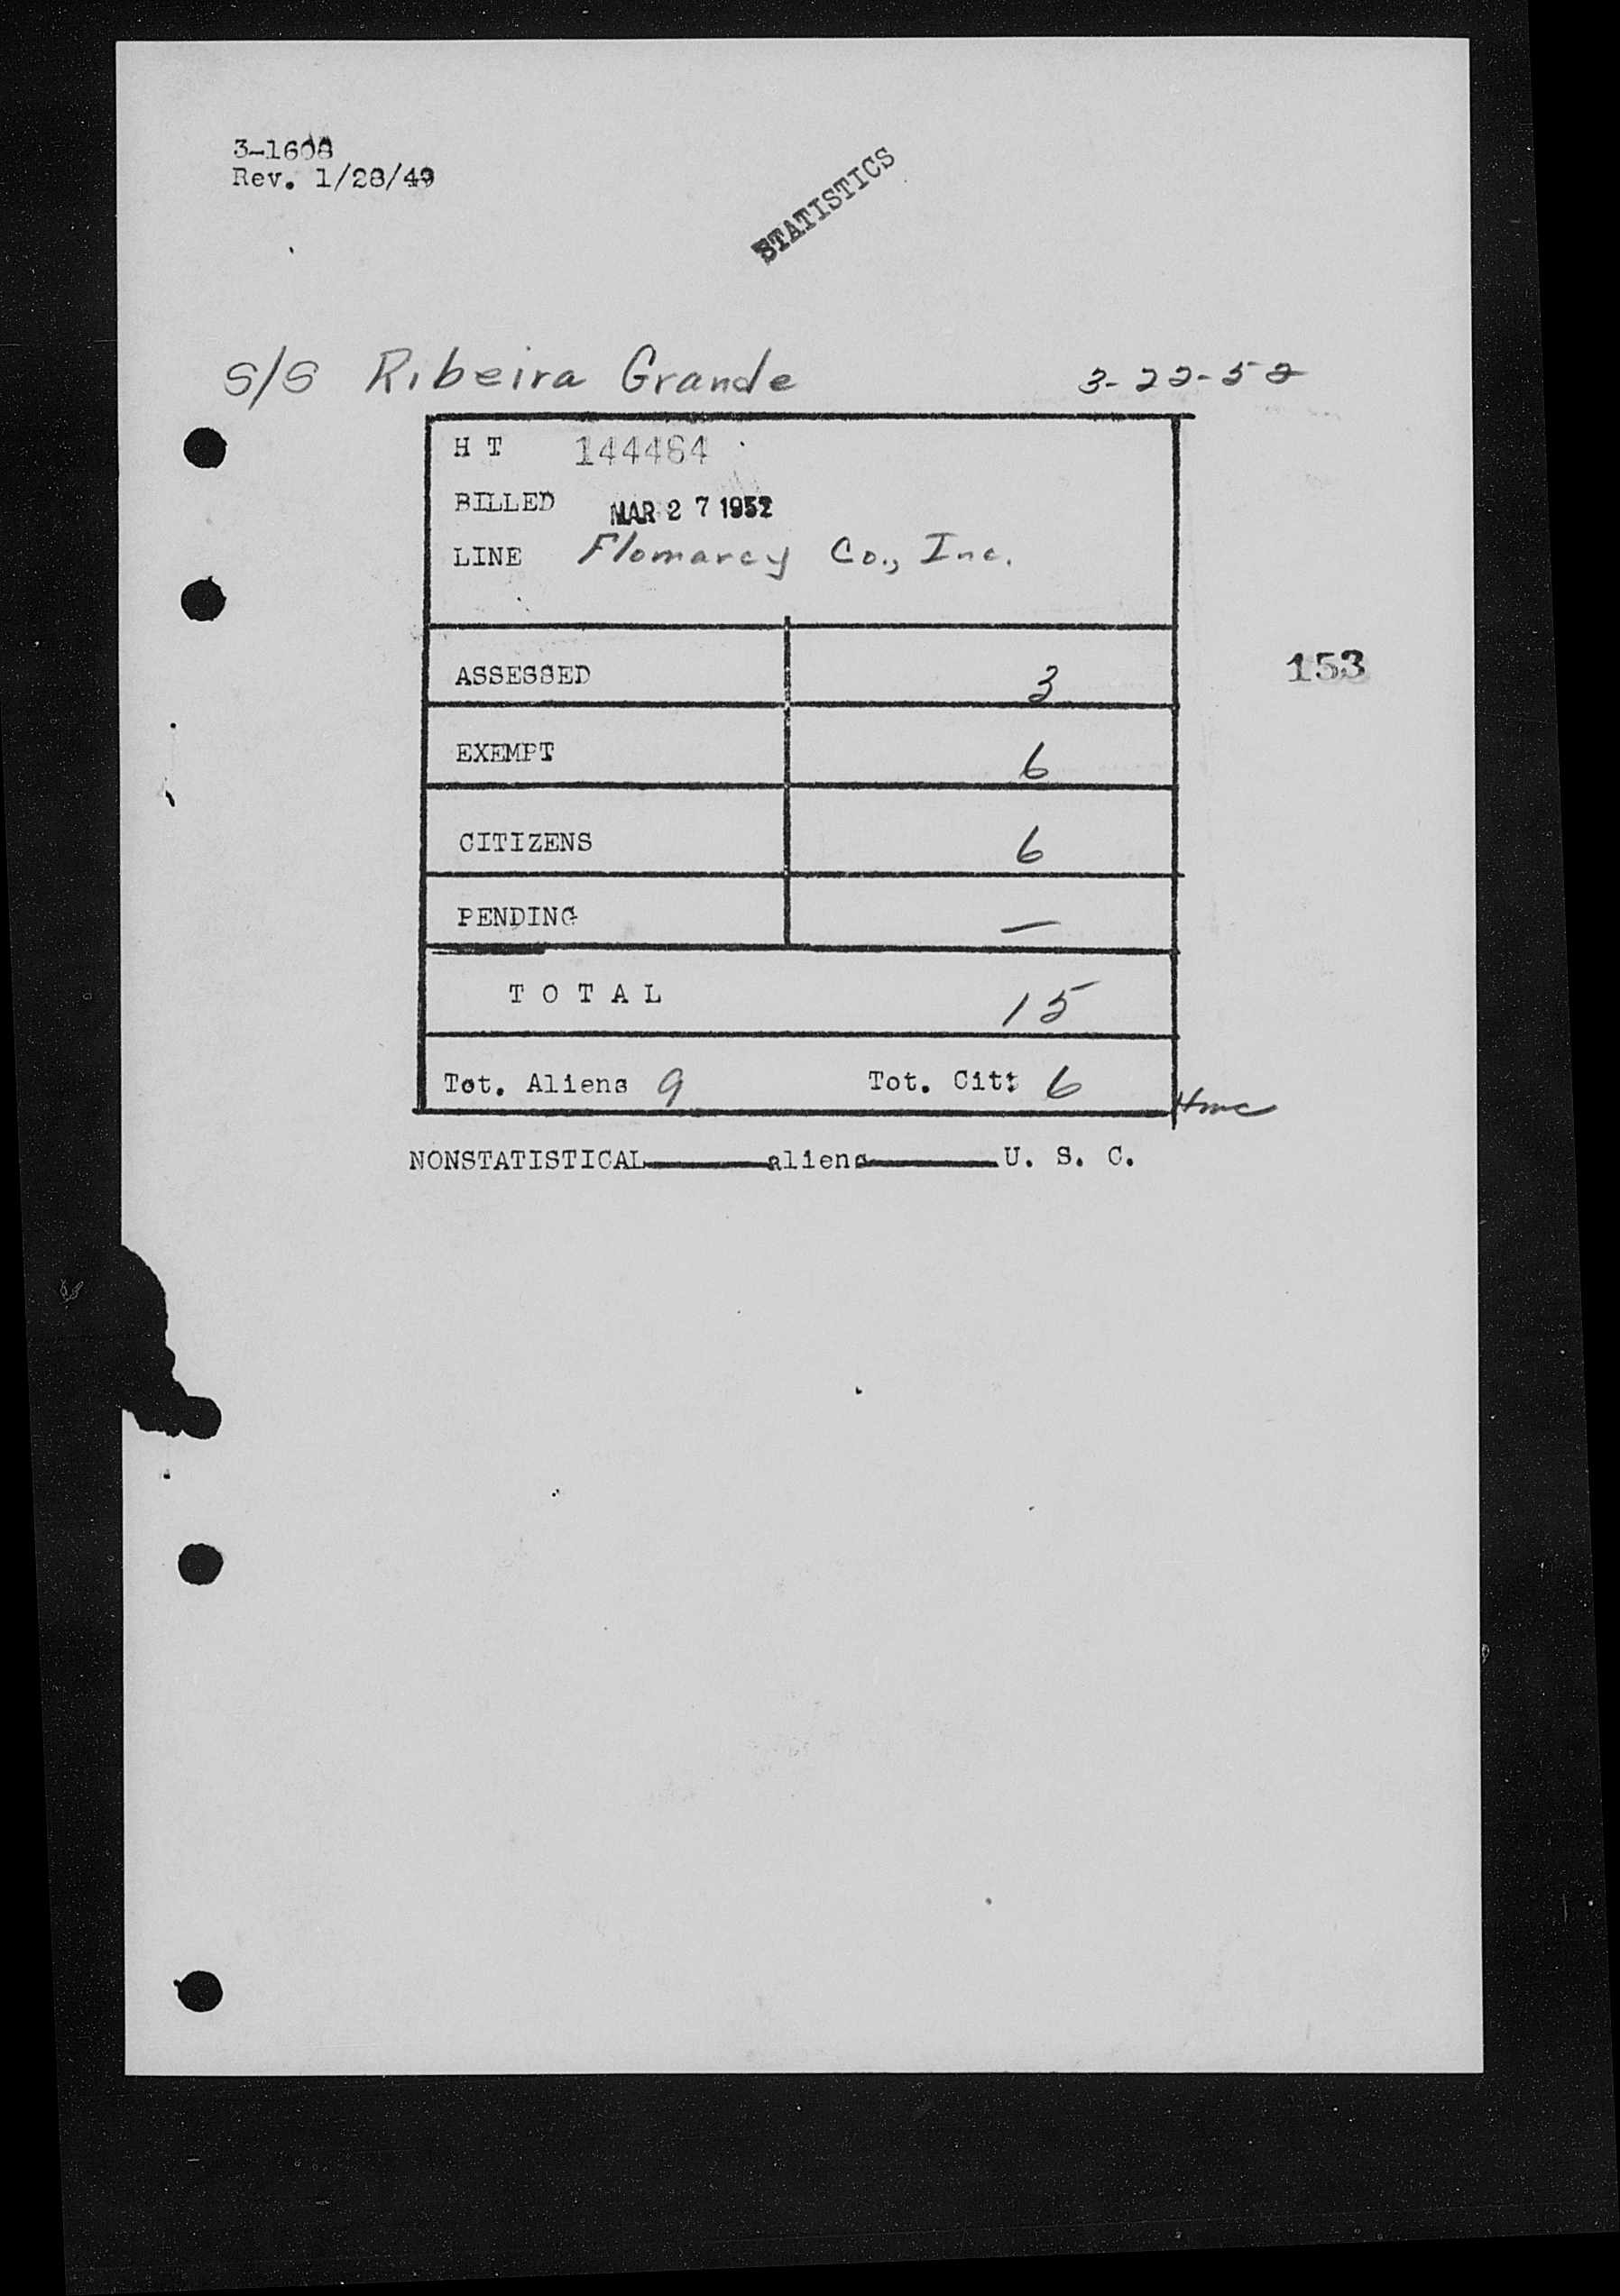 3-1608
Rev. 1/28/49
STATISTICS
S/S Ribeira Grande 3-22-52
H T 144464
BILLED MAR 27 1952
LINE Flomarcy Co., Inc.
ASSESSED 3
153
EXEMPT 6
CITIZENS 6
PENDING —
T O T A L 15
Tot. Aliens 9 Tot. Cit: 6
NONSTATISTICAL______aliens______U. S. C.